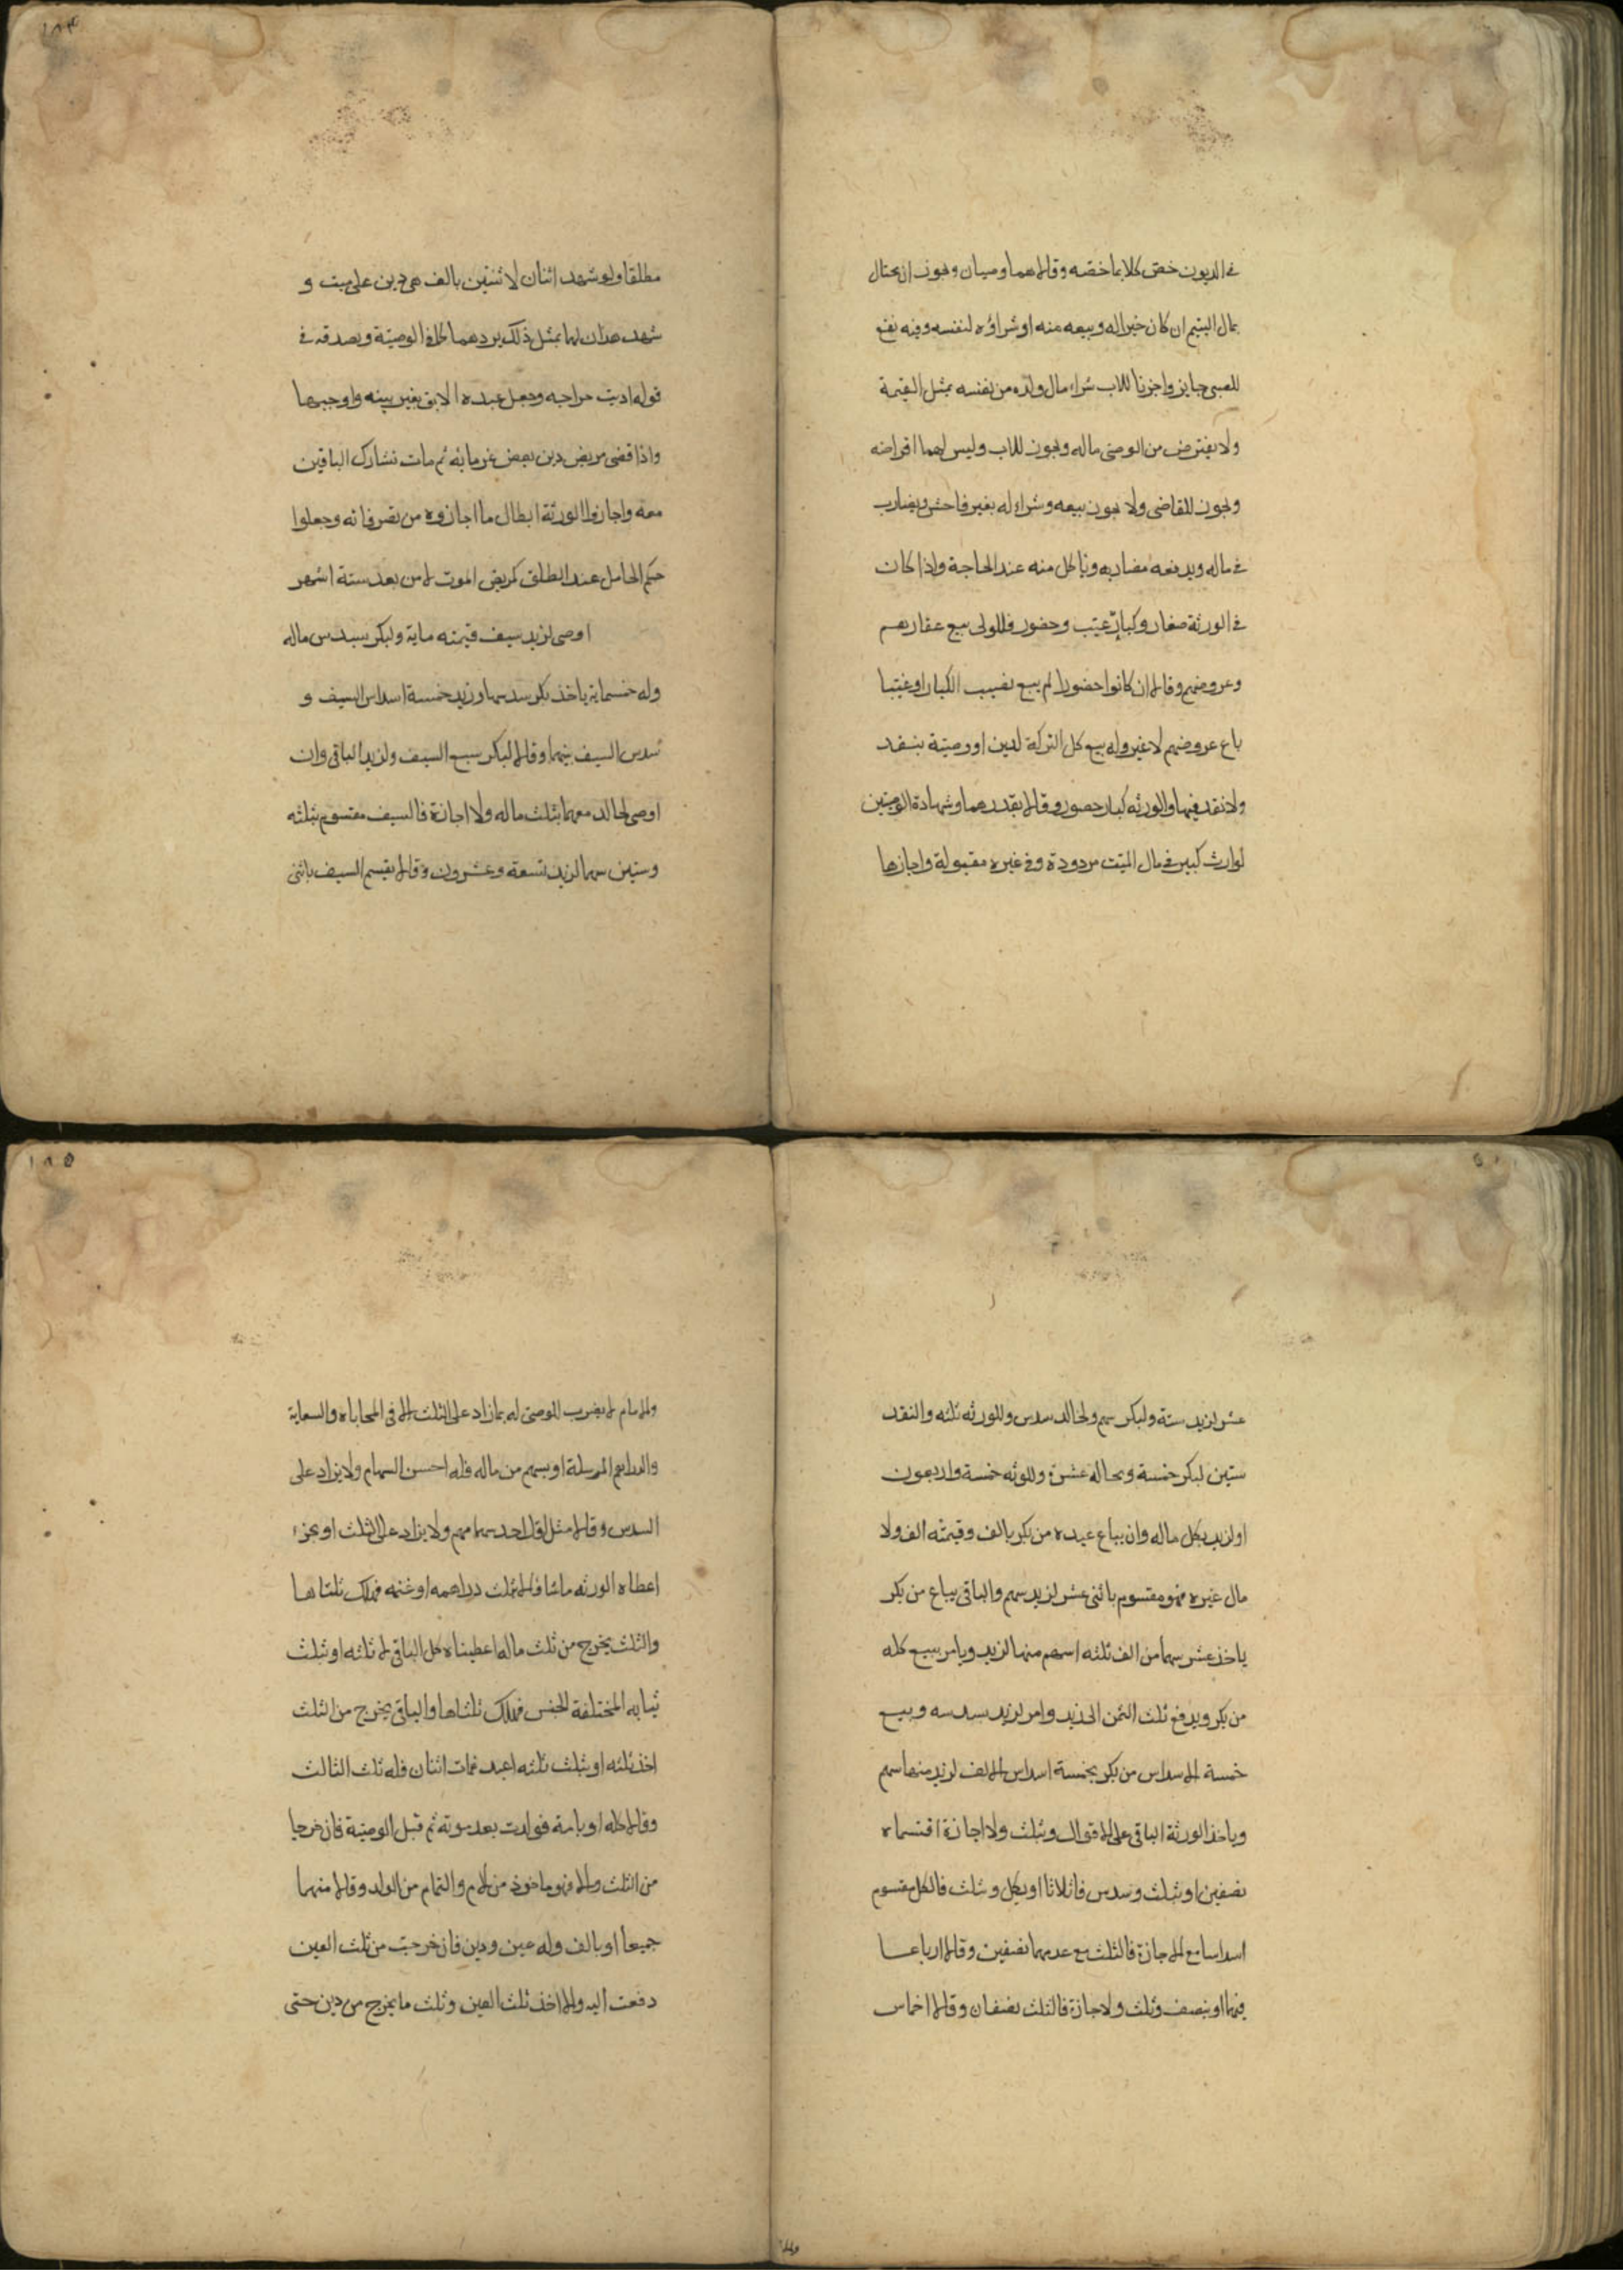 في الديون خص كلا بما خصه وقالا هما وصيان ويجوز ان يحتال
بمال اليتيم ان كان خيرا له وبيعه منه او شراؤه لنفسه وفيه نفع
للصبي جايز واجزنا للاب شراء مال ولده من نفسه بمثل القيمة
ولا يقترض من الوصي ماله ويجوز للاب وليس لهما اقراضه
ويجوز للقاضي ولا يجوز بيعه وشراء له بغبر فاحش ويضارب
في ماله ويدفعه مضاربه وياكل منه عند الحاجة واذا كان
في الورثة صغار وكبار غيب وحضور فللولى بيع عقارهم
وعروضهم وقالا ان كانوا حضورا لم يبع نصيب الكبار او غيبا
باع عروضهم لا غير وله بيع كل التركة لدين او وصية بنقد
ولا نقد فيها والورثه كبار حضور وقالا بقدرهما وشهادة الوصيين
لوارث كبير في مال الميت مردودة وفي غيره مقبولة واجازها
١٨٤
مطلقا ولو شهد اثنان لاثنين بالف هي دين على ميت و
شهد هذان لهما بمثل ذلك يردهما كما في الوصية ويصدقه في
قوله اديت خراجه وجعل عبده الابق بغير بينه واوجبها
واذا قضى مريض دين بعض غرمائه ثم مات تشارك الباقين
معه واجازوا الورثة ابطال ما اجازوه من تصرفاته وجعلوا
حكم الحامل عند الطلق كمريض الموت لا من بعد ستة اشهر
اوصى لزيد سيف قيمته ماية ولبكر سبدس ماله
وله خمسماية ياخذ بكر سدسها وزيد خمسة اسداس السيف و
سدس السيف بينهما وقالا لبكر سبع السيف ولزيد الباقي وان
اوصى لخالد معهما بثلث ماله ولا اجازة فالسيف مقسوم بثلثه
وستين سهما لزيد تسعة وعشرون وقالا يقسم السيف باثنى
عشر لزيد ستة ولبكر سهم ولخالد سدس وللورثه ثلثه والنقد
ستين لبكر خمسة ولخالد عشرة وللورثه خمسة واربعون
او لزيد بكل ماله وان يباع عبده من بكر بالف وقيمته الف ولا
مال غيره فهو مقسوم باثنى عشر لزيد سهم والباقي يباع من بكر
ياخذ عشر سهما من الف ثلثه اسهم منها لزيد ويامر ببيع كله
من بكر ويدفع ثلث الثمن الى زيد وامر لزيد بسدسه وبيع
خمسة الاسداس من بكر بخمسة اسداس الالف لزيد منها سهم
وياخذ الورثة الباقي على الاقوال وبثلث ولا اجازة اقتسماه
نصفين او بثلث وسدس فاثلاثا او بكل وثلث فالكل مقسوم
اسداسا مع الاجازة فالثلث مع عدمها نصفين وقالا ارباعا
فيهما او بنصف وثلث ولا اجازة فالثلث نصفان وقالا اخماس
١٨٥
والامام لا يضرب للموصى له بما زاد على الثلث الا في المحاباه والسعاية
والدراهم المرسلة او بسهم من ماله فله احسن السهام ولا يزاد على
السدس وقالا مثل لاقل احد سهما منهم ولا يزاد على الثلث او بجزء
اعطاه الورثه ما شا قالا بثلث دراهمه او غنمه فهلك ثلثاها
والثلث يخرج من ثلث ماله اعطيناه كل الباقي لا ثلثه او بثلث
ثيابه المختلفة الجنس فهلك ثلثاها والباقي يخرج من الثلث
اخذ ثلثه او بثلث ثلثه اعبد فمات اثنان فله ثلث الثالث
وقالا كله او بامة فولدت بعد موته ثم قبل الوصية فان خرجا
من الثلث والا فهو ماخوذ من الام والتمام من الولد وقالا منهما
جميعا او بالف وله عين ودين فان خرجت من ثلث العين
دفعت اليه والا اخذ ثلث العين وثلث ما يخرج من دين حتى